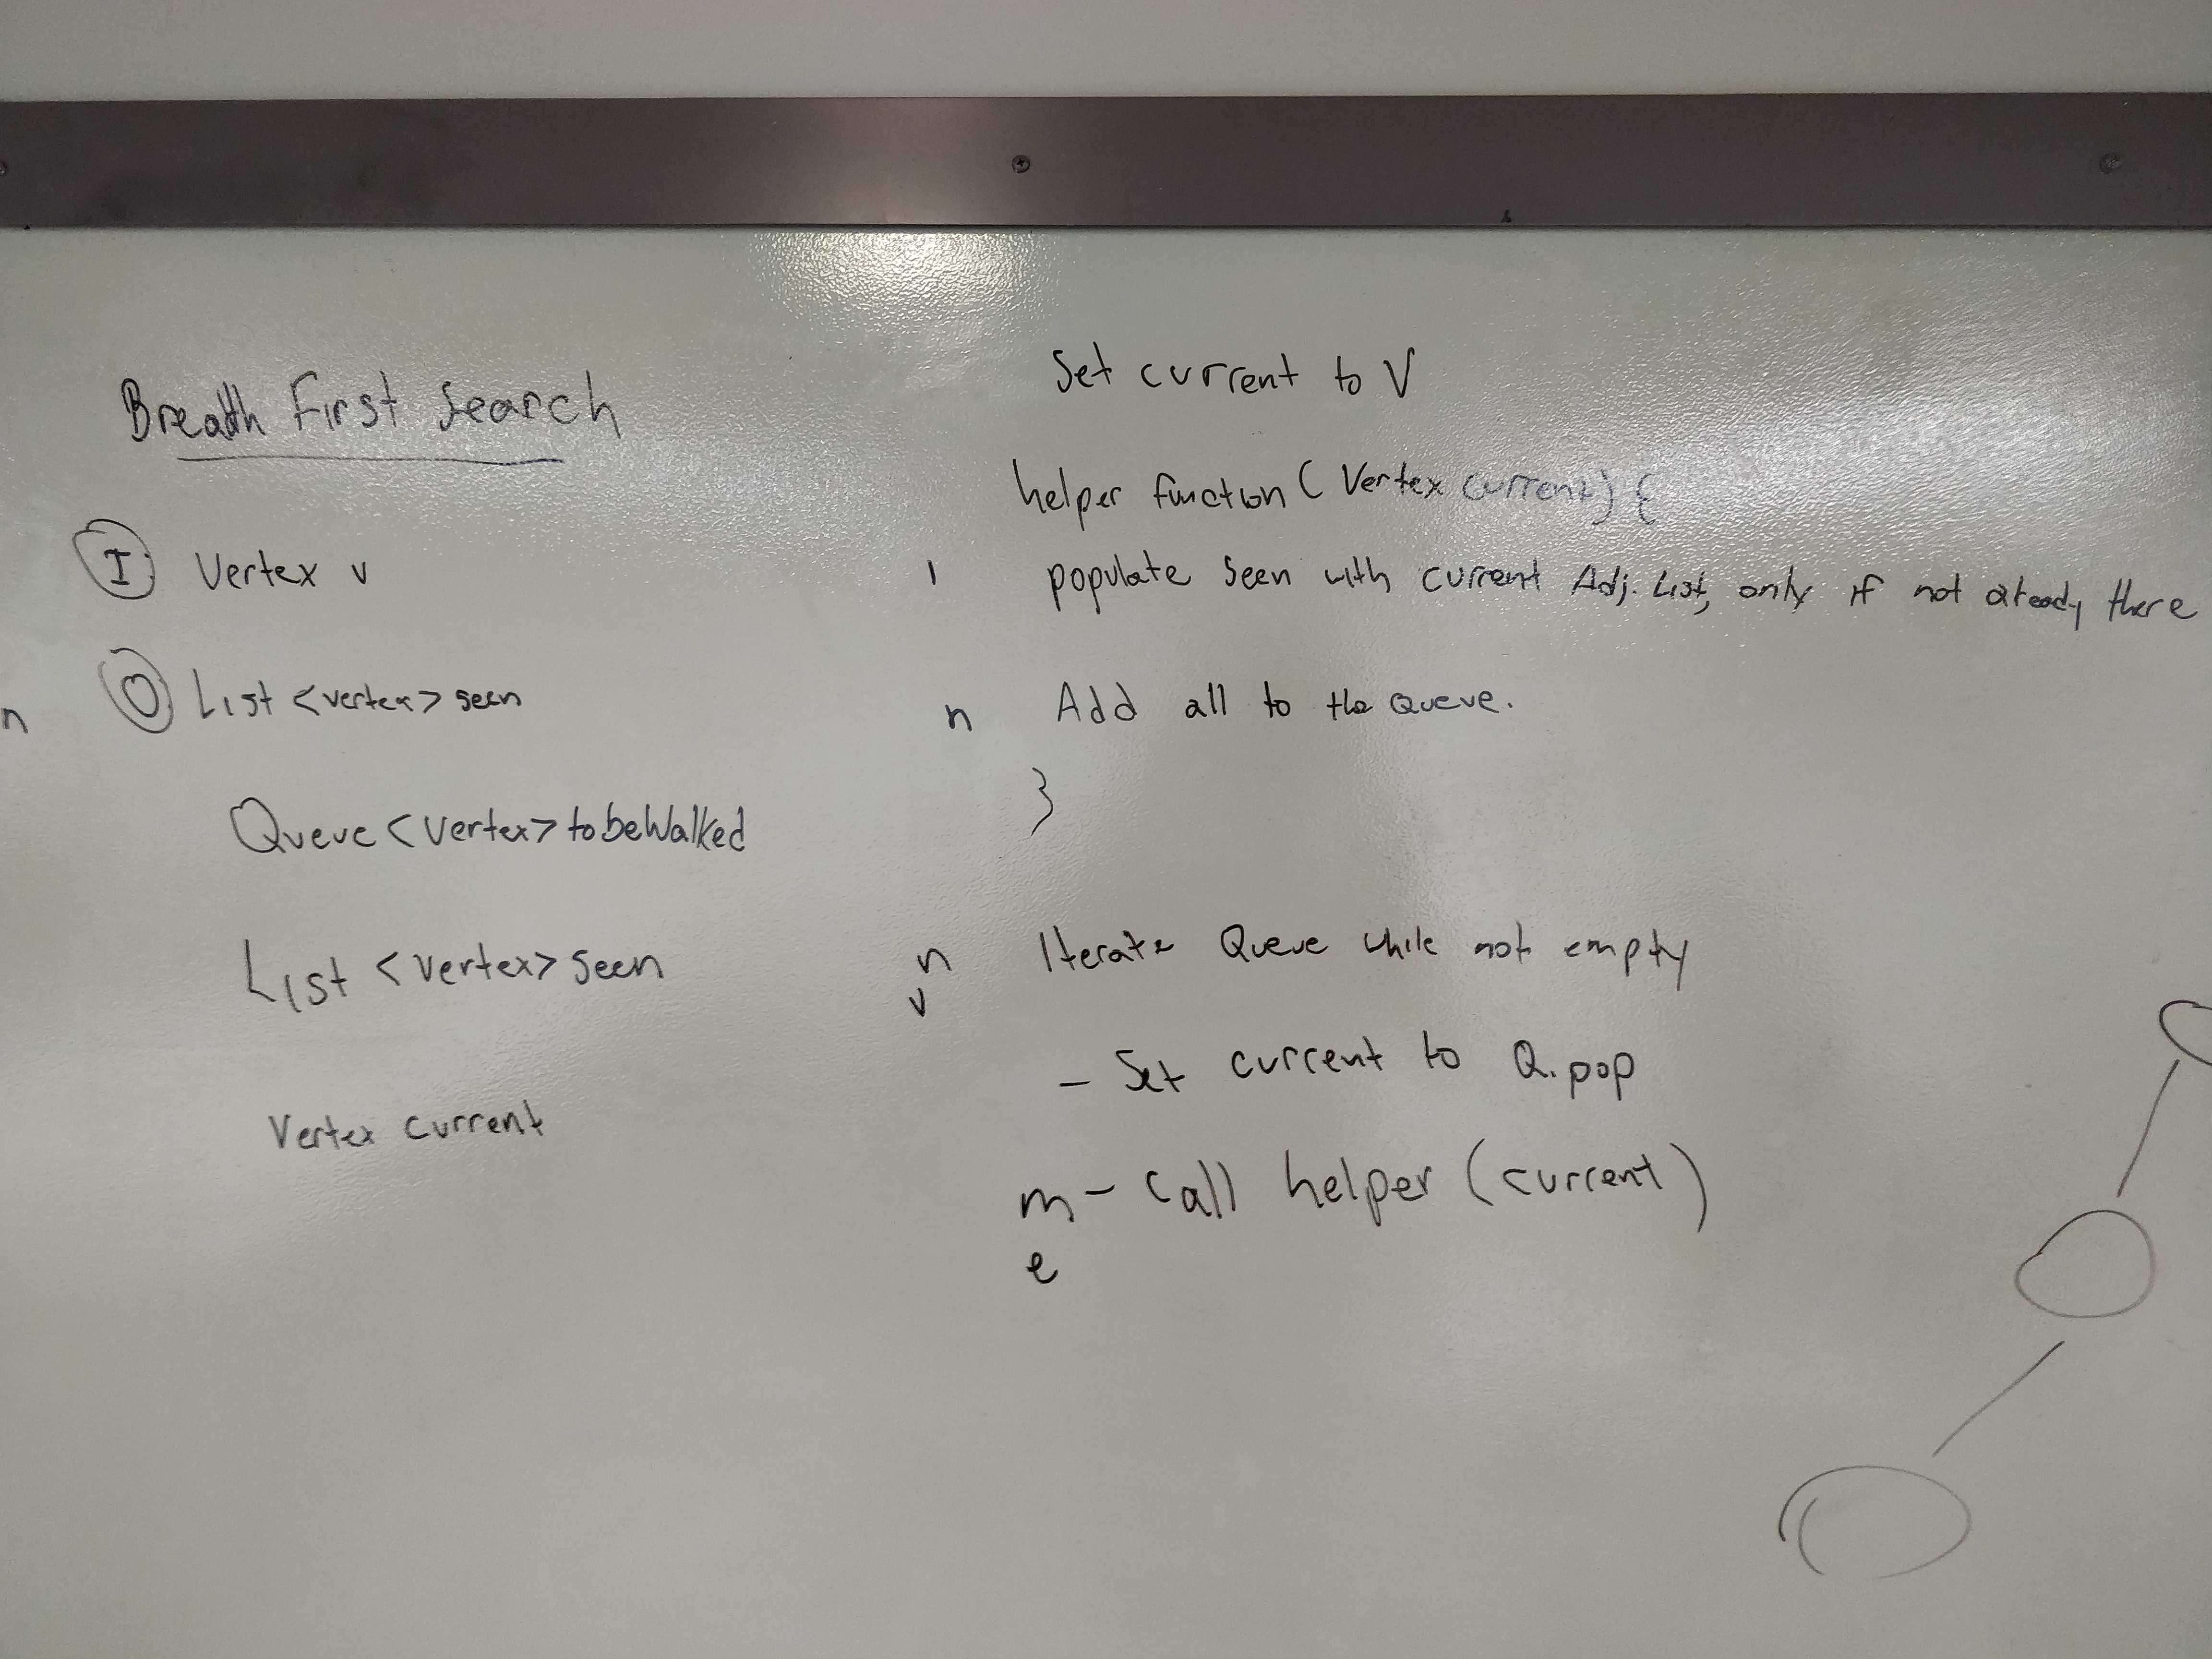 Breadth First Search
I Vertex v
O List <vertex> seen
n
Queue <Vertex> tobeWalked
List <vertex> seen
Vertex current
Set current to V
helper function ( Vertex current) {
1 populate seen with current Adj. List, only if not already there
n Add all to the Queue.
}
n Iterate Queue while not empty
v
- Set current to Q.pop
m - call helper (current)
e